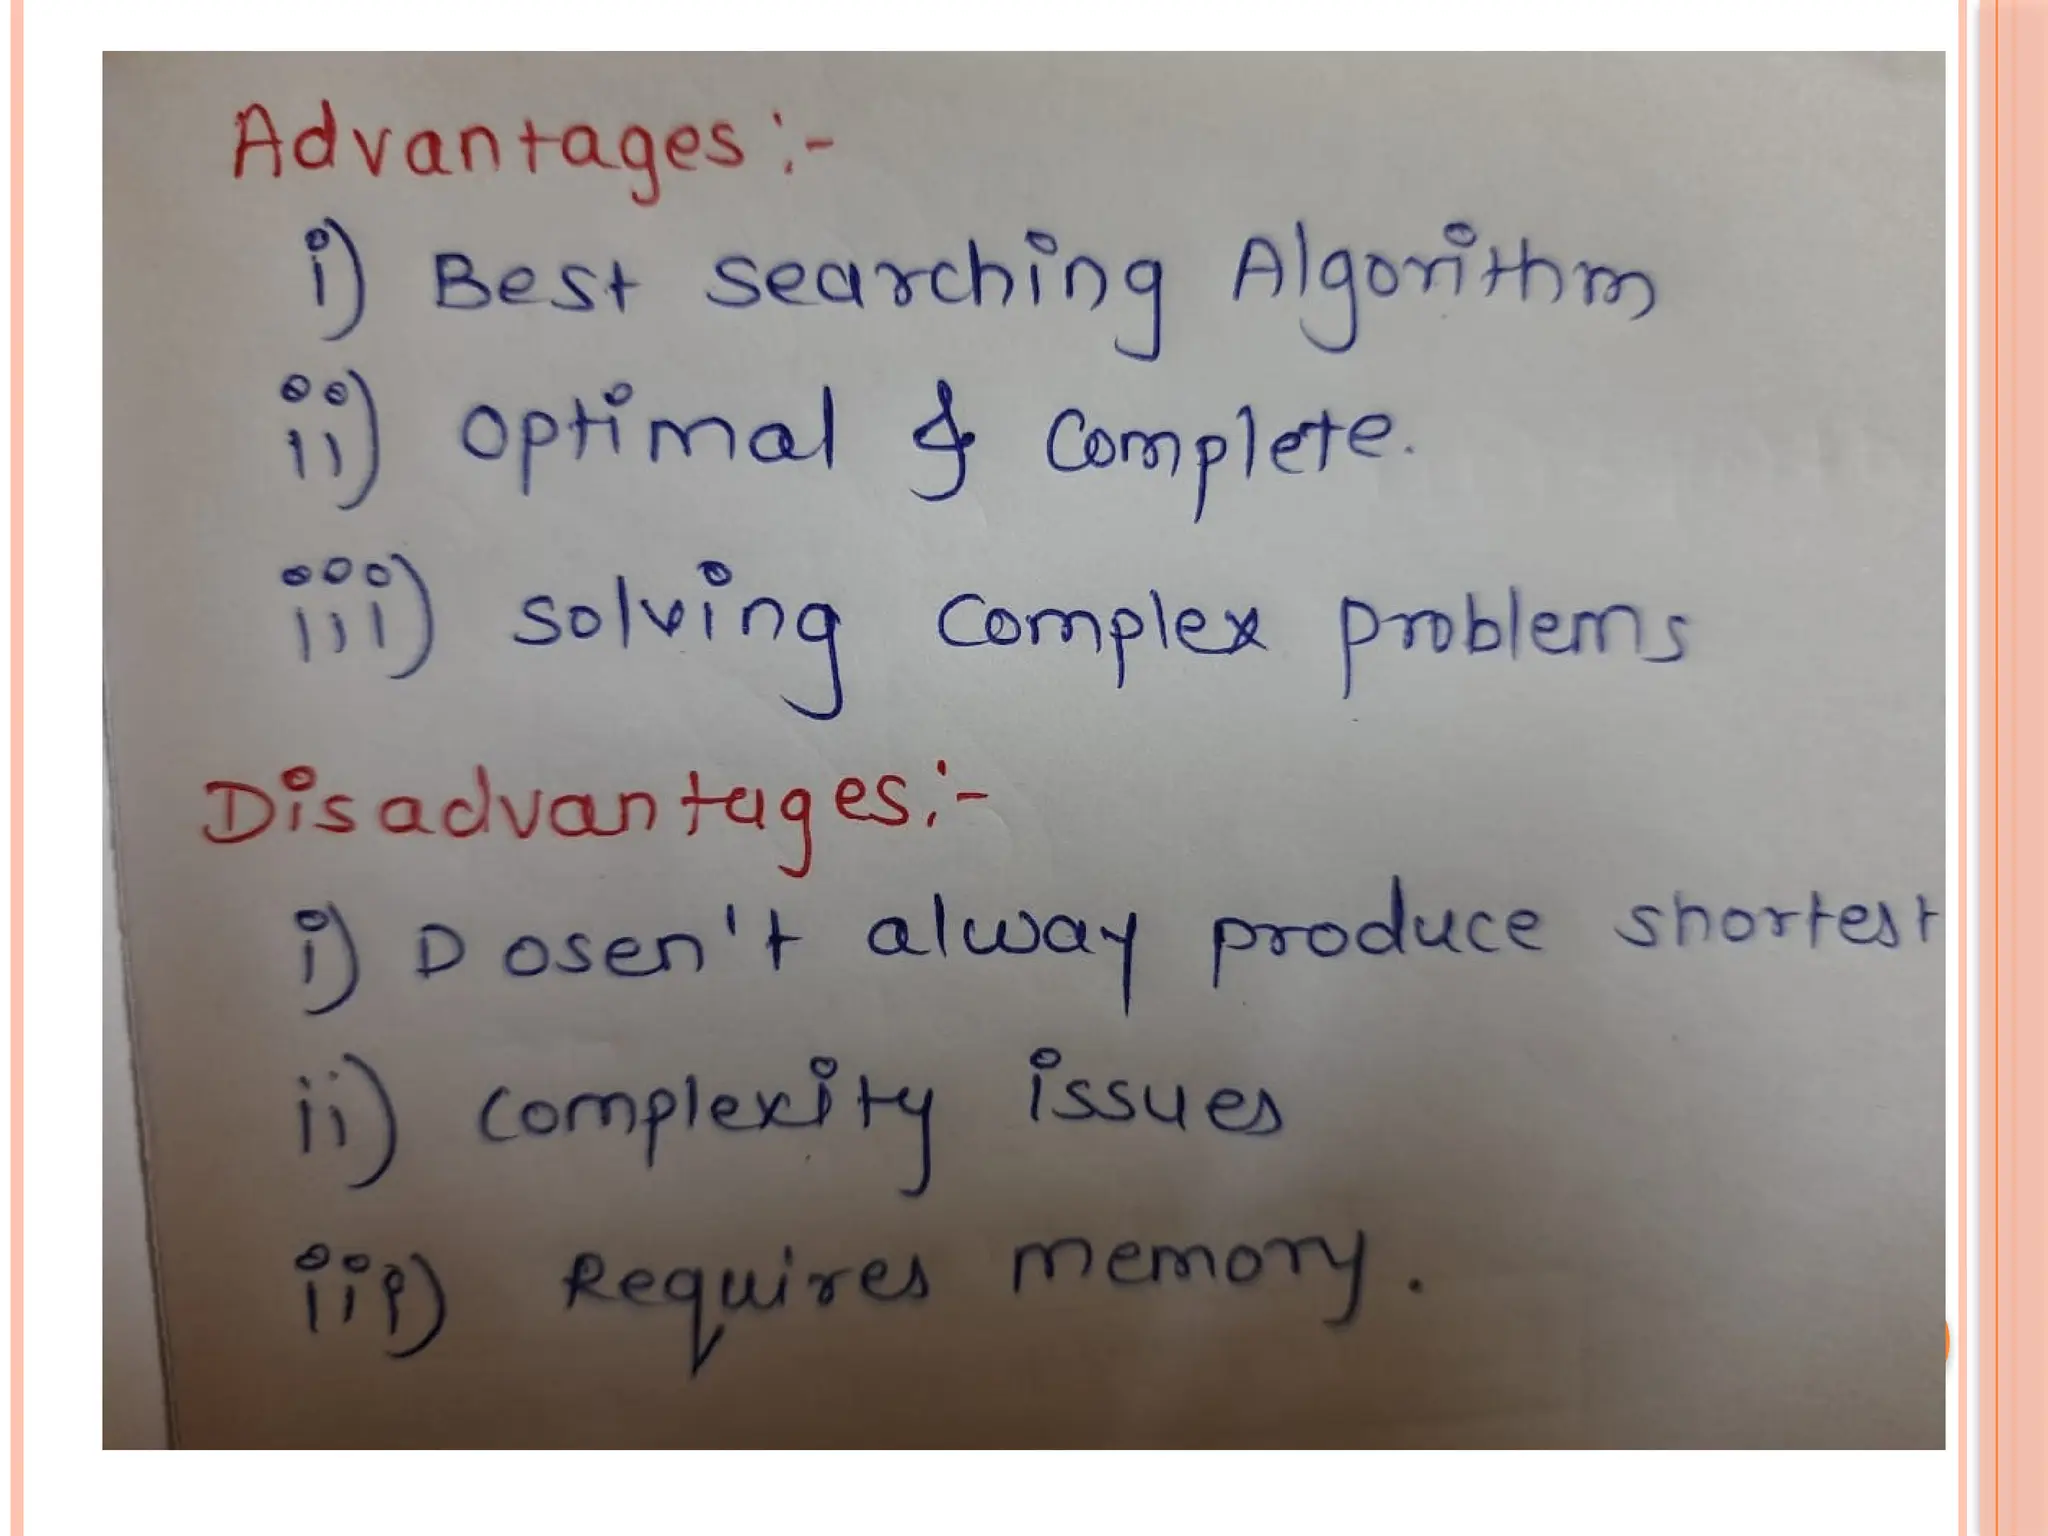 Advantages :-
i) Best searching Algorithm
ii) optimal & complete.
iii) solving complex problems
Disadvantages :-
i) Dosen't alway produce shortest
ii) complexity issues
iii) Requires memory.